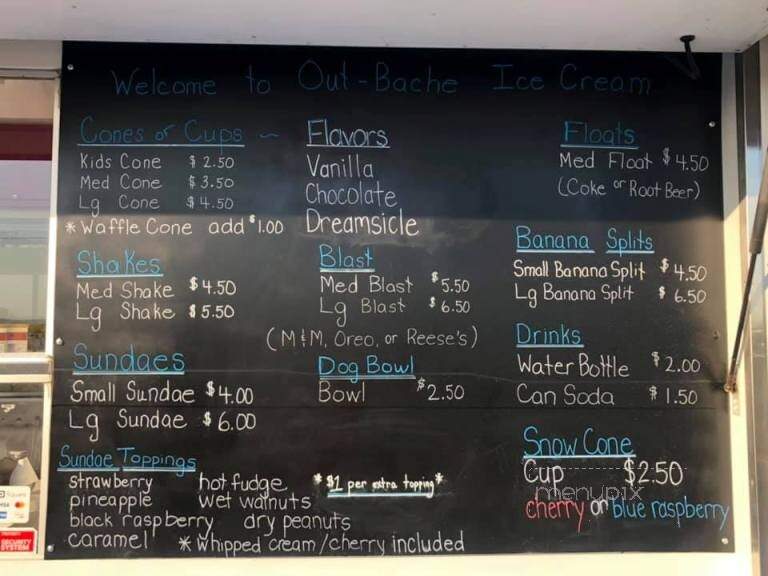 Welcome to Out-Bache Ice Cream
Cones or Cups ~
Kids Cone $2.50
Med Cone $3.50
Lg Cone $4.50
*Waffle Cone add $1.00
Flavors
Vanilla
Chocolate
Dreamsicle
Floats
Med Float $4.50
(Coke or Root Beer)
Shakes
Med Shake $4.50
Lg Shake $5.50
Blast
Med Blast $5.50
Lg Blast $6.50
(M&M, Oreo, or Reese's)
Banana Splits
Small Banana Split $4.50
Lg Banana Split $6.50
Sundaes
Small Sundae $4.00
Lg Sundae $6.00
Dog Bowl
Bowl $2.50
Drinks
Water Bottle $2.00
Can Soda $1.50
Sundae Toppings
strawberry hot fudge
pineapple wet walnuts
black raspberry dry peanuts
caramel *whipped cream/cherry included
*$1 per extra topping*
Snow Cone
Cup $2.50
cherry or blue raspberry
menupix
Square
VISA
SECURITY
SYSTEM